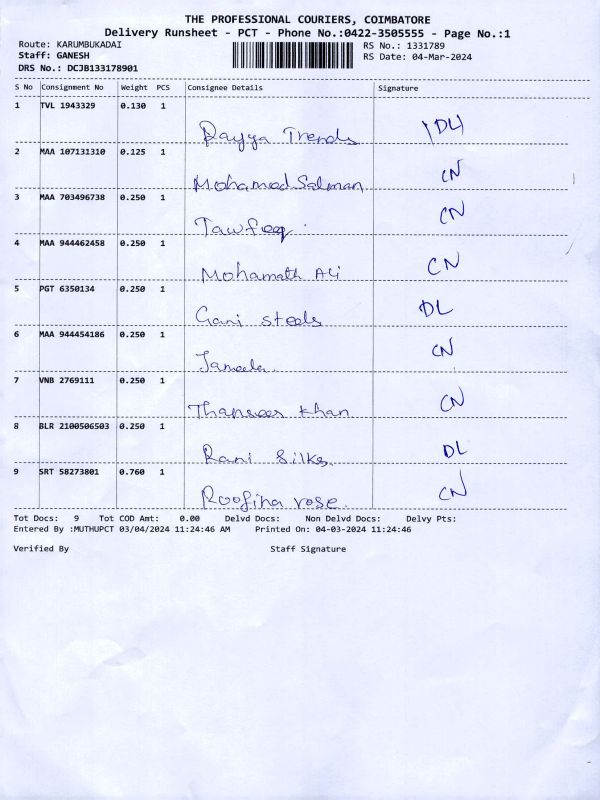 THE PROFESSIONAL COURIERS, COIMBATORE
Delivery Runsheet - PCT - Phone No.:0422-3505555 - Page No.:1
Route: KARUMBUKADAI RS No.: 1331789
Staff: GANESH RS Date: 04-Mar-2024
DRS No.: DCJB133178901
S No Consignment No Weight PCS Consignee Details Signature
1 TVL 1943329 0.130 1
Rayya Trends DL
2 MAA 107131310 0.125 1
Mohamed Salman CN
3 MAA 703496738 0.250 1
Tawfeeq CN
4 MAA 944462458 0.250 1
Mohamath Ali CN
5 PGT 6350134 0.250 1
Gani steels DL
6 MAA 944454186 0.250 1
Jameela CN
7 VNB 2769111 0.250 1
Thanseer khan CN
8 BLR 2100506503 0.250 1
Rani Silks DL
9 SRT 58273801 0.760 1
Roofina rose CN
Tot Docs: 9 Tot COD Amt: 0.00 Delvd Docs: Non Delvd Docs: Delvy Pts:
Entered By :MUTHUPCT 03/04/2024 11:24:46 AM Printed On: 04-03-2024 11:24:46
Verified By Staff Signature